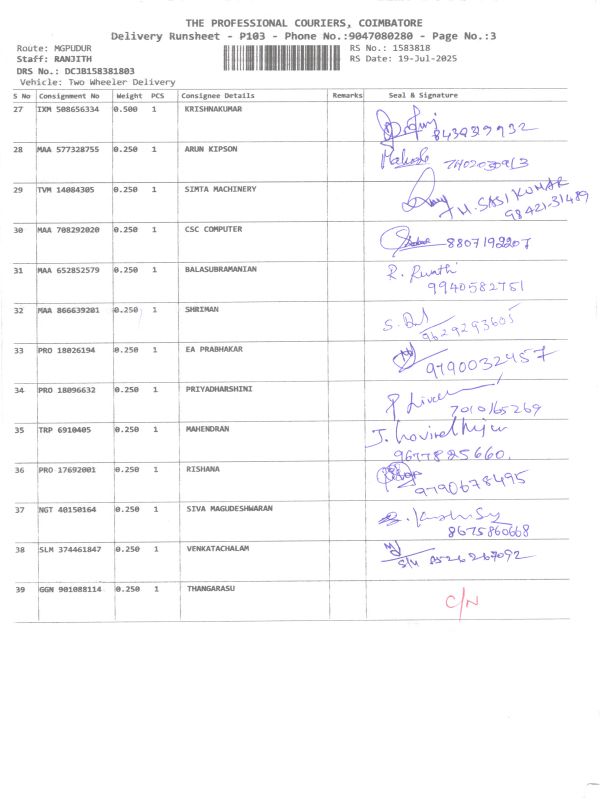 THE PROFESSIONAL COURIERS, COIMBATORE
Delivery Runsheet - P103 - Phone No.:9047080280 - Page No.:3
Route: MGPUDUR RS No.: 1583818
Staff: RANJITH RS Date: 19-Jul-2025
DRS No.: DCJB158381803
Vehicle: Two Wheeler Delivery
S No Consignment No Weight PCS Consignee Details Remarks Seal & Signature
27 IXM 508656334 0.500 1 KRISHNAKUMAR
28 MAA 577328755 0.250 1 ARUN KIPSON
29 TVM 14084305 0.250 1 SIMTA MACHINERY
M. SASI KUMAR
98421-31489
30 MAA 708292020 0.250 1 CSC COMPUTER
8807192207
31 MAA 652852579 0.250 1 BALASUBRAMANIAN
9940582751
32 MAA 866639201 0.250 1 SHRIMAN
9629293605
33 PRO 18026194 0.250 1 EA PRABHAKAR
9790032457
34 PRO 18096632 0.250 1 PRIYADHARSHINI
7010165269
35 TRP 6910405 0.250 1 MAHENDRAN
9677825660.
36 PRO 17692001 0.250 1 RISHANA
9790678495
37 NGT 40150164 0.250 1 SIVA MAGUDESHWARAN
8675860668
38 SLM 374461847 0.250 1 VENKATACHALAM
39 GGN 901088114 0.250 1 THANGARASU
C/N